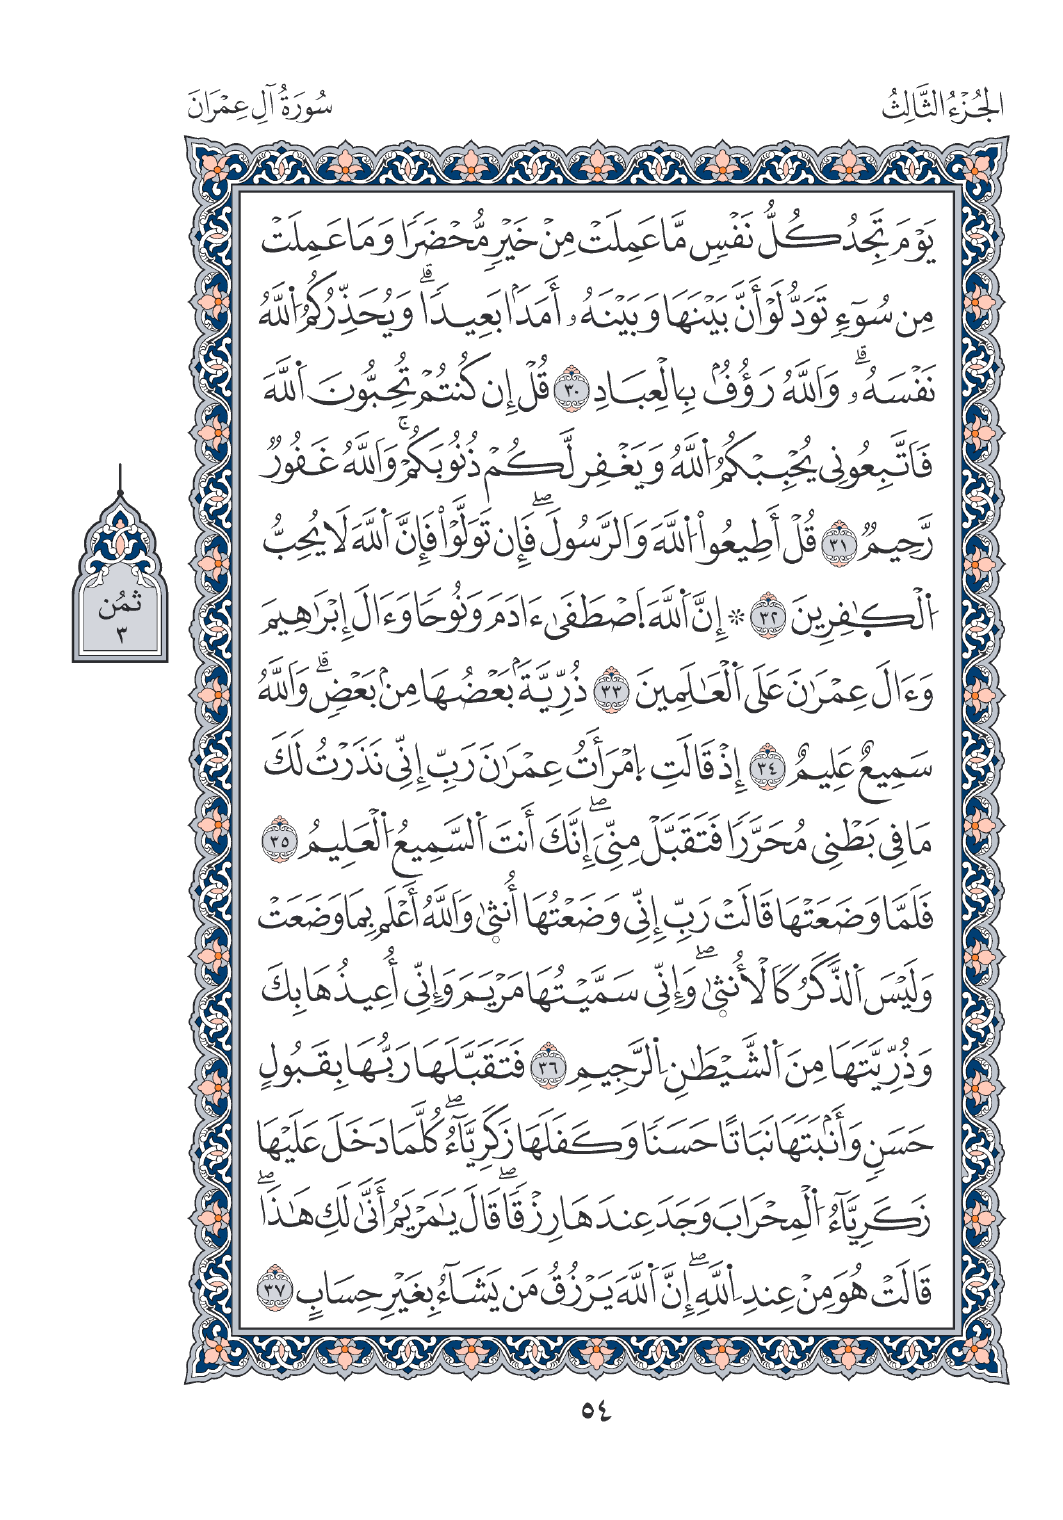 الجُزْءُ الثَّالِثُ
سُورَةُ آلِ عِمْرَانَ
يَوْمَ تَجِدُ كُلُّ نَفْسٖ مَّا عَمِلَتْ مِنْ خَيْرٖ مُّحْضَرٗا وَمَا عَمِلَتْ
مِن سُوٓءٖ تَوَدُّ لَوْ أَنَّ بَيْنَهَا وَبَيْنَهُۥ أَمَدَۢا بَعِيدٗاۗ وَيُحَذِّرُكُمُ اُ۬للَّهُ
نَفْسَهُۥۗ وَاَللَّهُ رَؤُفُۢ بِالْعِبَادِ ٣٠ قُلْ إِن كُنتُمْ تُحِبُّونَ اَ۬للَّهَ
فَاَتَّبِعُونِي يُحْبِبْكُمُ اُ۬للَّهُ وَيَغْفِر لَّكُمْ ذُنُوبَكُمْۚ وَاَللَّهُ غَفُورٞ
رَّحِيمٞ ٣١ قُلْ أَطِيعُواْ اُ۬للَّهَ وَاَلرَّسُولَۖ فَإِن تَوَلَّوْاْ فَإِنَّ اَ۬للَّهَ لَا يُحِبُّ
اُ۬لْكٰ۪فِرِينَ ٣٢ ۞ إِنَّ اَ۬للَّهَ اَ۪صْطَفَىٰ ءَادَمَ وَنُوحٗا وَءَالَ إِبْرَٰهِيمَ
وَءَالَ عِمْرَٰنَ عَلَى اَ۬لْعَٰلَمِينَ ٣٣ ذُرِّيَّةَۢ بَعْضُهَا مِنۢ بَعْضٖۗ وَاَللَّهُ
سَمِيعٌ عَلِيمٌ ٣٤ إِذْ قَالَتِ اِ۪مْرَأَتُ عِمْرَٰنَ رَبِّ إِنِّي نَذَرْتُ لَكَ
مَا فِي بَطْنِي مُحَرَّرٗا فَتَقَبَّلْ مِنِّيَۖ إِنَّكَ أَنتَ اَ۬لسَّمِيعُ اُ۬لْعَلِيمُ ٣٥
فَلَمَّا وَضَعَتْهَا قَالَتْ رَبِّ إِنِّي وَضَعْتُهَا أُنث۪ىٰ وَاَللَّهُ أَعْلَم بِمَا وَضَعَتْ
وَلَيْسَ اَ۬لذَّكَرُ كَالْأُنث۪ىٰۖ وَإِنِّي سَمَّيْتُهَا مَرْيَمَ وَإِنِّي أُعِيذُهَا بِكَ
وَذُرِّيَّتَهَا مِنَ اَ۬لشَّيْطَٰنِ اِ۬لرَّجِيمِ ٣٦ فَتَقَبَّلَهَا رَبُّهَا بِقَبُولٍ
حَسَنٖ وَأَنۢبَتَهَا نَبَاتًا حَسَنٗا وَكَفَلَهَا زَكَرِيَّآءُۖ كُلَّمَا دَخَلَ عَلَيْهَا
زَكَرِيَّآءُ اُ۬لْمِحْرَابَ وَجَدَ عِندَهَا رِزْقٗاۖ قَالَ يَٰمَرْيَمُ أَنَّىٰ لَكِ هَٰذَاۖ
قَالَتْ هُوَ مِنْ عِندِ اِ۬للَّهِۖ إِنَّ اَ۬للَّهَ يَرْزُقُ مَن يَشَآءُ بِغَيْرِ حِسَابٍ ٣٧
ثمُن
٣
٥٤